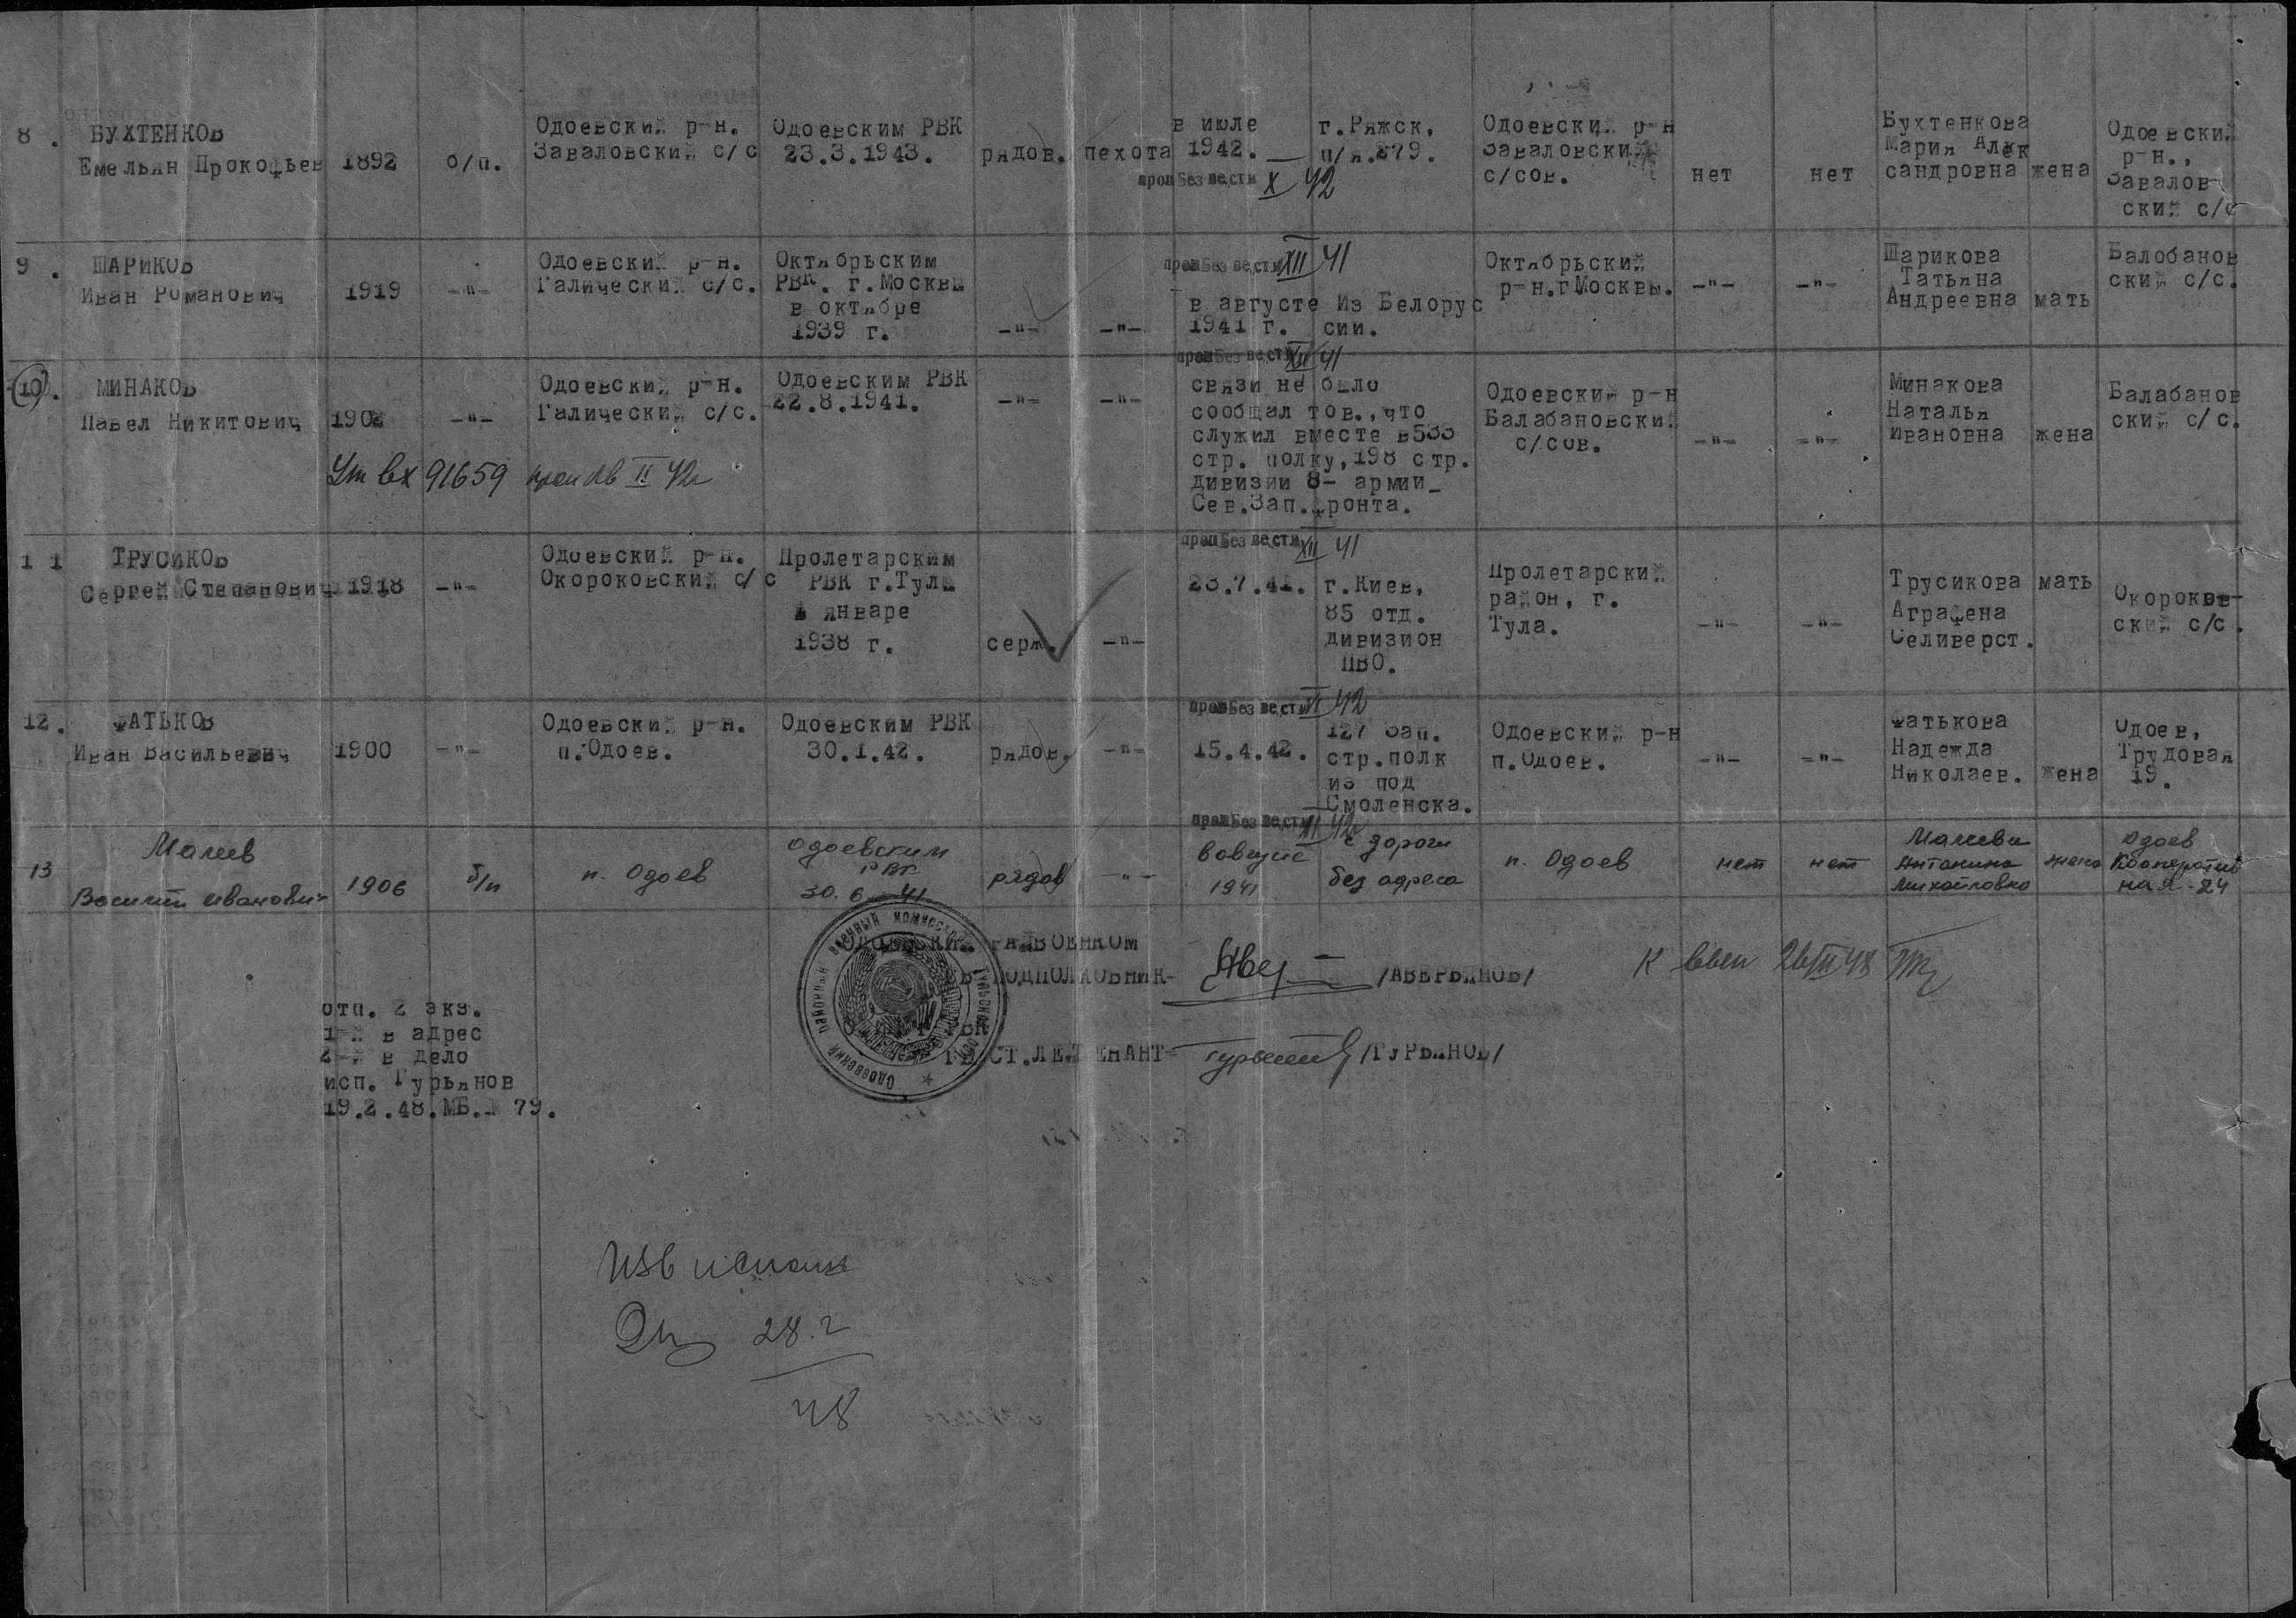 8. БУХТЕНКОВ
Емельян Прокофьев 1892 б/п.
Одоевский р-н.
Заваловский с/с
Одоевским РВК
23.3.1943.
рядов. пехота
в июле
1942.
г.Ряжск,
п/я.279.
проп Без вести X 42
Одоевский р-н
Заваловский
с/сов.
нет нет
Бухтенкова
Мария Алек
сандровна жена
Одоевский
р-н.,
Завалов
ский с/с
9. ШАРИКОВ
Иван Романович 1919 -"-
Одоевский р-н.
Галический с/с.
Октябрьским
РВК. г.Москвы
в октябре
1939 г.
-"- -"-
проп Без вести XII 41
в августе Из Белорус
1941 г. сии.
Октябрьский
р-н.г Москвы.
-"- -"-
Шарикова
Татьяна
Андреевна мать
Балобанов
ский с/с.
10. МИНАКОВ
Павел Никитович -"-
Одоевский р-н.
Галический с/с.
Одоевским РВК
22.8.1941.
-"- -"-
проп Без вести XII 41
связи не было
сообщал тов.,что
служил вместе в533
стр. полку,198 стр.
дивизии 8- армии_
Сев.Зап.фронта.
Одоевский р-н
Балабановский
с/сов.
-"- -"-
Минакова
Наталья
Ивановна жена
Балабанов
ский с/с.
вх 91659 II 42г
11 ТРУСИКОВ
Сергей Степанович 1918 -"-
Одоевский р-н.
Окороковский с/с
Пролетарским
РВК г.Тулы
в январе
1938 г.
серж. -"-
проп Без вести XII 41
23.7.41.
г.Киев,
85 отд.
дивизион
ПВО.
Пролетарский
район, г.
Тула.
-"- -"-
Трусикова мать
Аграфена
Селиверст.
Окороков-
ский с/с.
12. ФАТЬКОВ
Иван Васильевич 1900 -"-
Одоевский р-н.
п.Одоев.
Одоевским РВК
30.1.42.
рядов. -"-
проп Без вести VI 42
15.4.42.
127 Зап.
стр.полк
из под
Смоленска.
Одоевский р-н
п.Одоев.
-"- -"-
Фатькова
Надежда
Николаев. жена
Одоев,
Трудовая
19.
13 Малеев
Василий Иванович 1906 б/п
п. Одоев
Одоевским
РВК
30.6.41
рядов -"-
проп Без вести
в августе
1941
с дороги
без адреса
п. Одоев
нет нет
Малеева
Антонина жена
Михайловна
Одоев
Кооператив
ная-24
ОДОЕВСКИЙ РАЙВОЕНКОМ
ПОДПОЛКОВНИК- /АВЕРЬЯНОВ/
РВК
СТ.ЛЕЙТЕНАНТ- /ГУРЬЯНОВ/
Одоевский районный военный комиссариат Тульской
отп. 2 экз.
1-й в адрес
2-й в дело
исп. Гурьянов
19.2.48.МБ.№ 79.
28.2
48